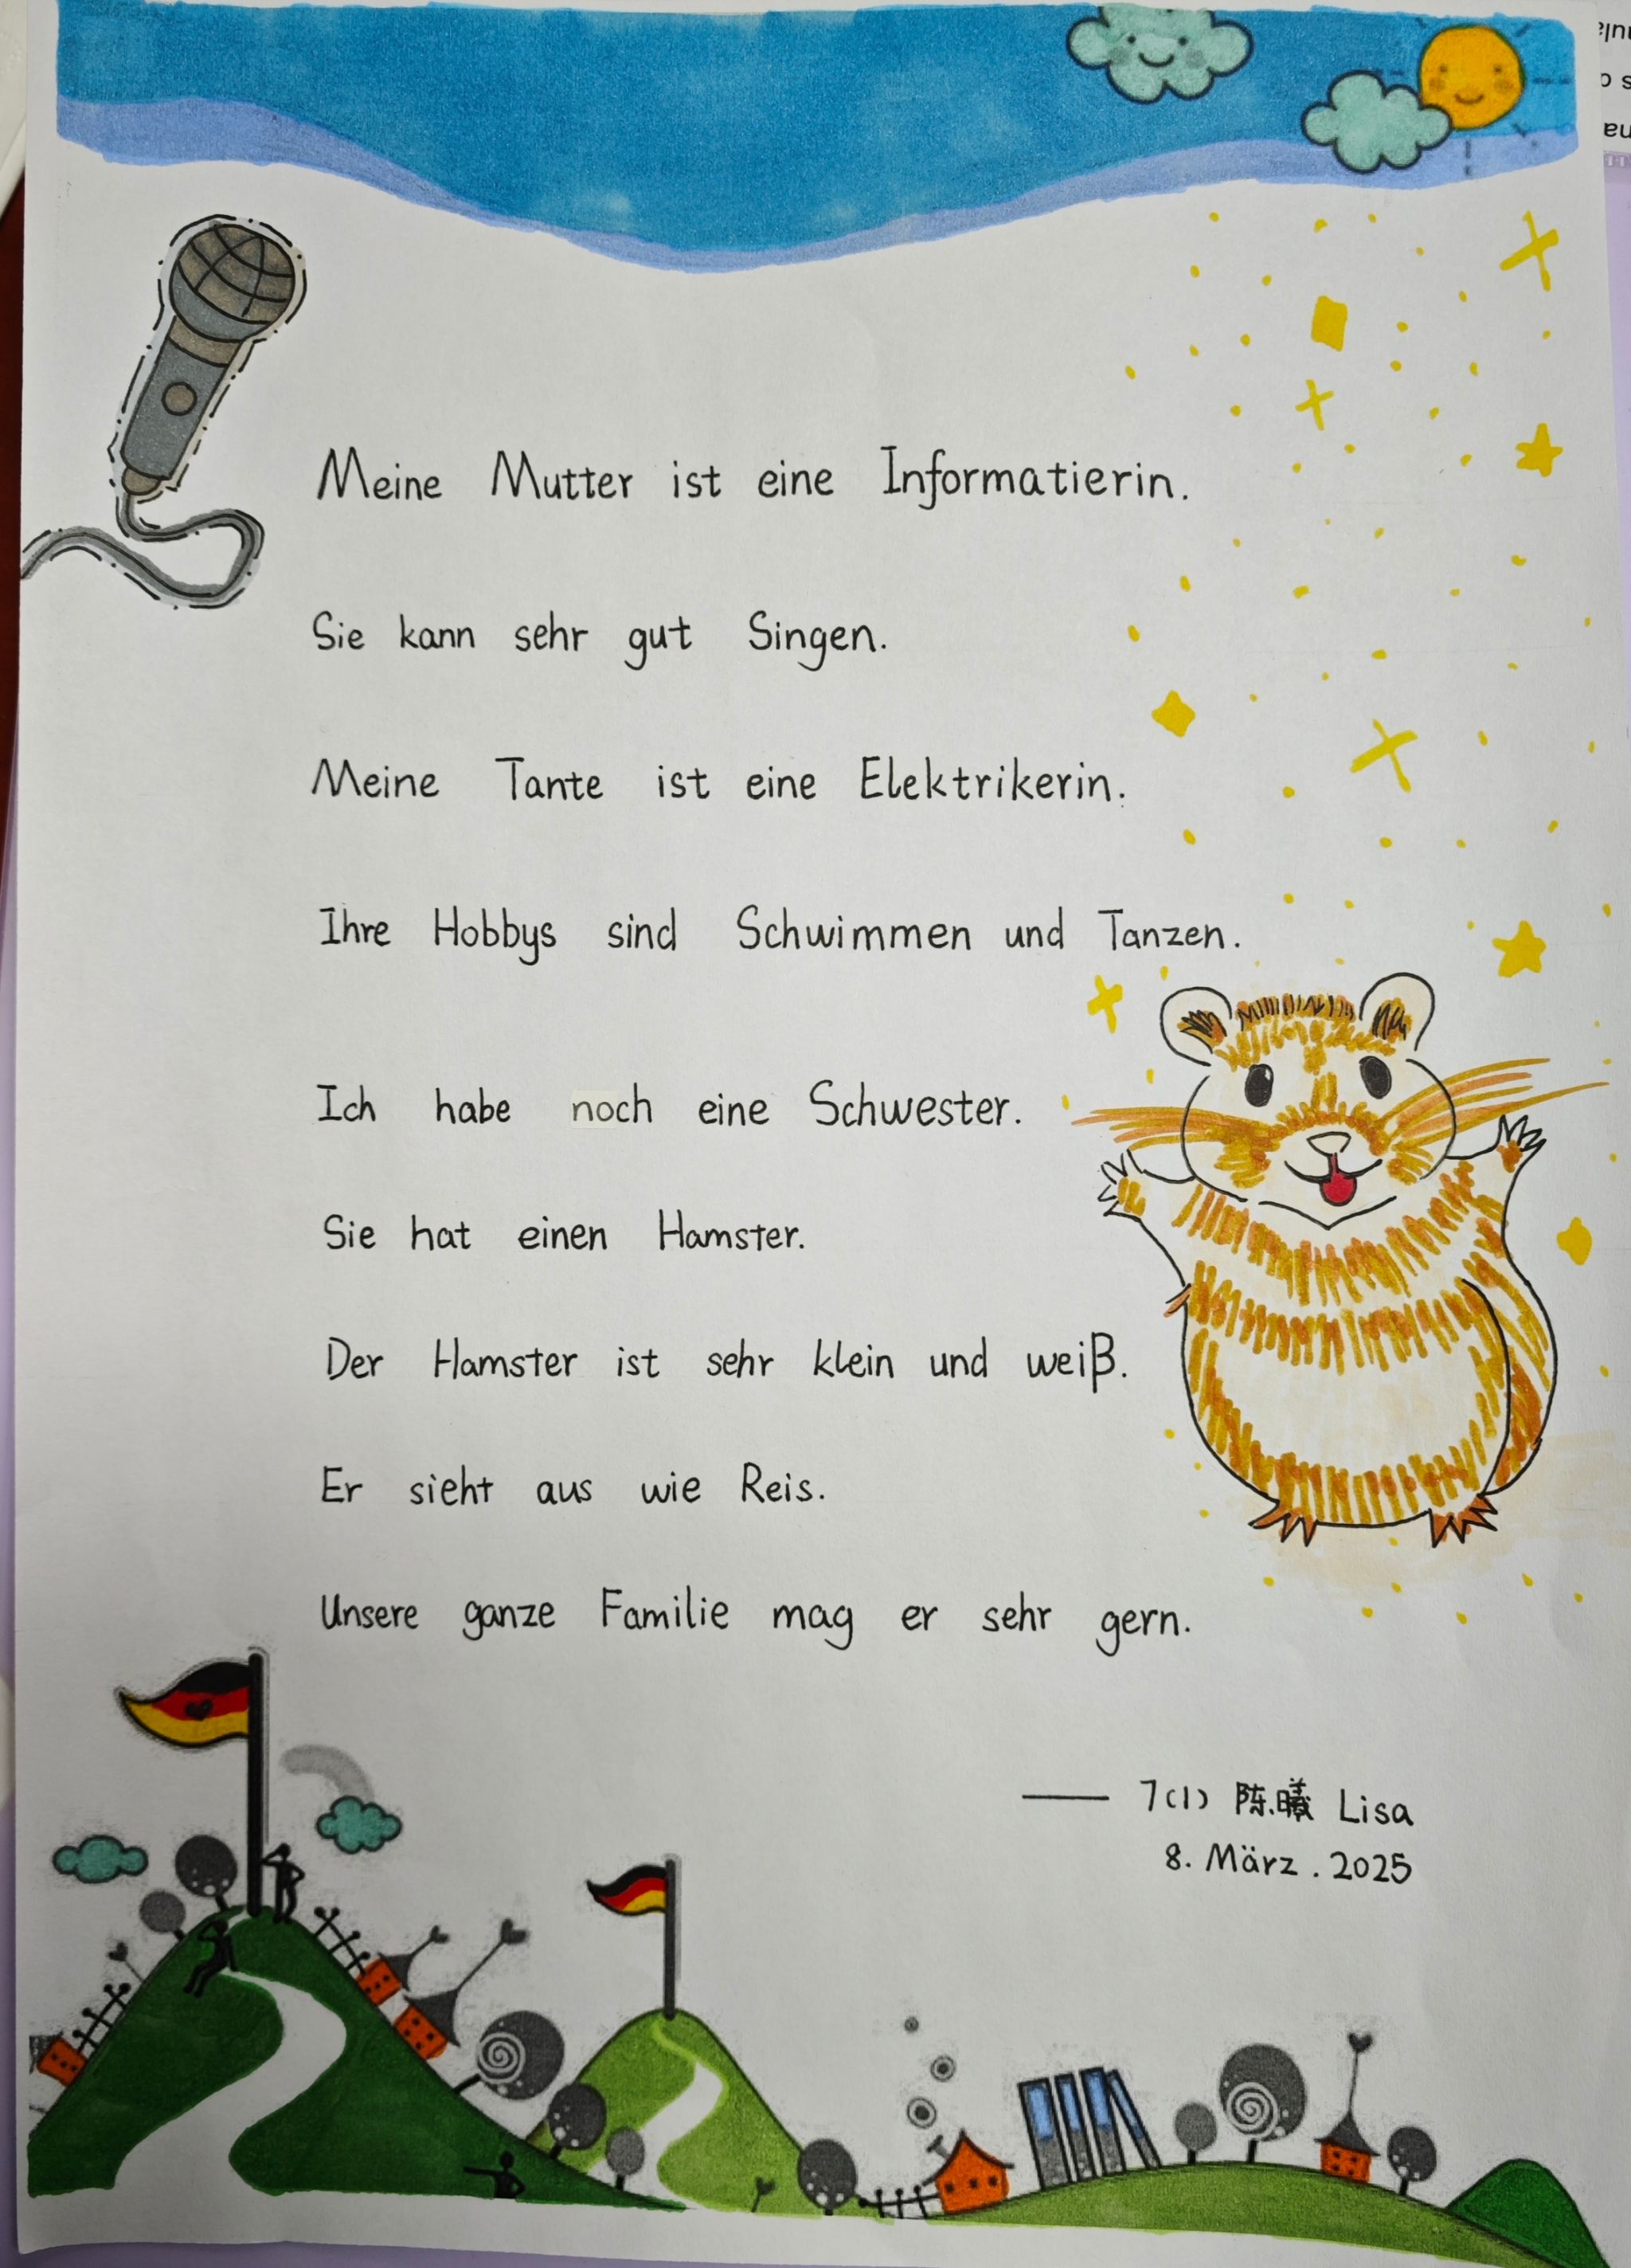 Meine Mutter ist eine Informatierin.
Sie kann sehr gut Singen.
Meine Tante ist eine Elektrikerin.
Ihre Hobbys sind Schwimmen und Tanzen.
Ich habe noch eine Schwester.
Sie hat einen Hamster.
Der Hamster ist sehr klein und weiß.
Er sieht aus wie Reis.
Unsere ganze Familie mag er sehr gern.
—— 7(1) 陈曦 Lisa
8. März. 2025